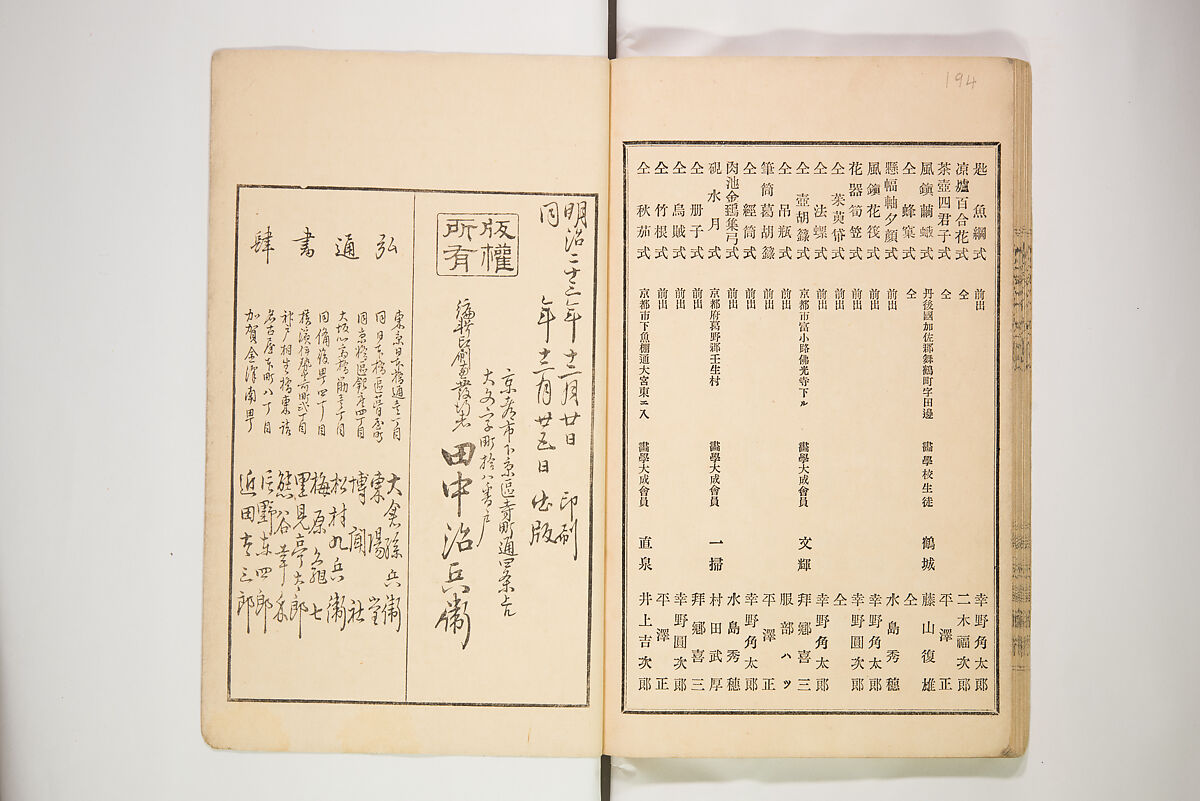 194
匙 魚網式 前出 幸野角太郎
凉爐百合花式 仝 二木福次郎
茶壺四君子式 仝 平澤正
風鎭繭蛾式 丹後國加佐郡舞鶴町字田邊 畵學校生徒 鶴城 藤山復雄
仝 蜂窠式 仝 仝
懸幅軸夕顔式 前出 水島秀穗
風鎭花筏式 前出 幸野角太郎
花器筍笠式 前出 幸野圓次郎
仝 茱萸帒式 前出 仝
仝 法螺式 前出 幸野角太郎
仝 壺胡籙式 京都市富小路佛光寺下ル 畵學大成會員 文輝 拜郷喜三
仝 吊瓶式 前出 服部ハツ
筆筒葛胡籙式 前出 平澤正
仝 經筒式 前出 幸野角太郎
肉池金鵄集弓式 前出 水島秀穗
硯 水月式 京都府葛野郡壬生村 畵學大成會員 一掃 村田武厚
仝 册子式 前出 拜郷喜三
仝 烏賊式 前出 幸野圓次郎
仝 竹根式 前出 平澤正
仝 秋茄式 京都市下魚棚通大宮東ニ入 畵學大成會員 直泉 井上吉次郎
明治二十三年十二月廿日 印刷
同 年十二月廿五日 出版
京都市下京區寺町通四条上
大文字町拾八番戸
版權所有
編輯印刷兼發行者 田中治兵衞
弘通書肆
東京日本橋通壹丁目 大倉孫兵衞
同日本橋區 東陽堂
同京橋區銀座四丁目 博聞社
大坂心斎橋 松村九兵衞
同備後町四丁目 梅原亀七
横濱 里見亭太郎
神戸相生橋東詰 熊谷幸
名古屋本町八丁目 野東四郎
加賀金澤南町 近田太三郎